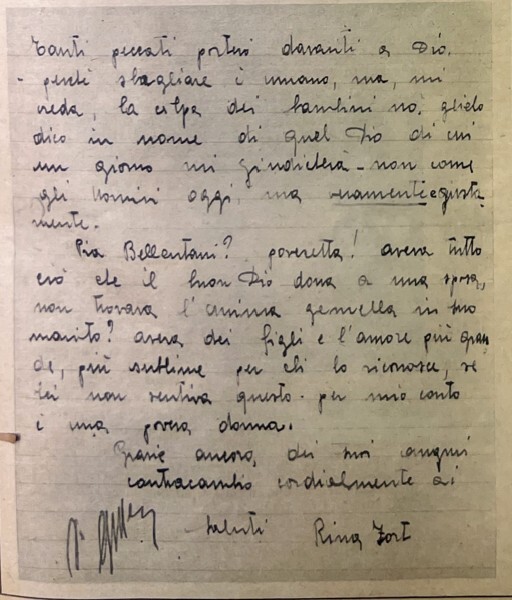 Tanti peccati porterò davanti a Dio.
perchè sbagliare è umano, ma, mi
creda, la colpa dei bambini no. glielo
dico in nome di quel Dio di cui
un giorno mi giudicherà - non come
gli uomini oggi, ma umamente e giusta
mente.
Pia Bellentani? poveretta! aveva tutto
ciò che il buon Dio dona a una sposa,
non trovava l'anima gemella in suo
marito? aveva dei figli e l'amore più gran
de, più sublime per chi lo riconosce, se
lei non sentiva questo. per mio conto
è una povera donna.
Grazie ancora, dei suoi auguri
contracambio cordialmente ai
saluti Rina Fort